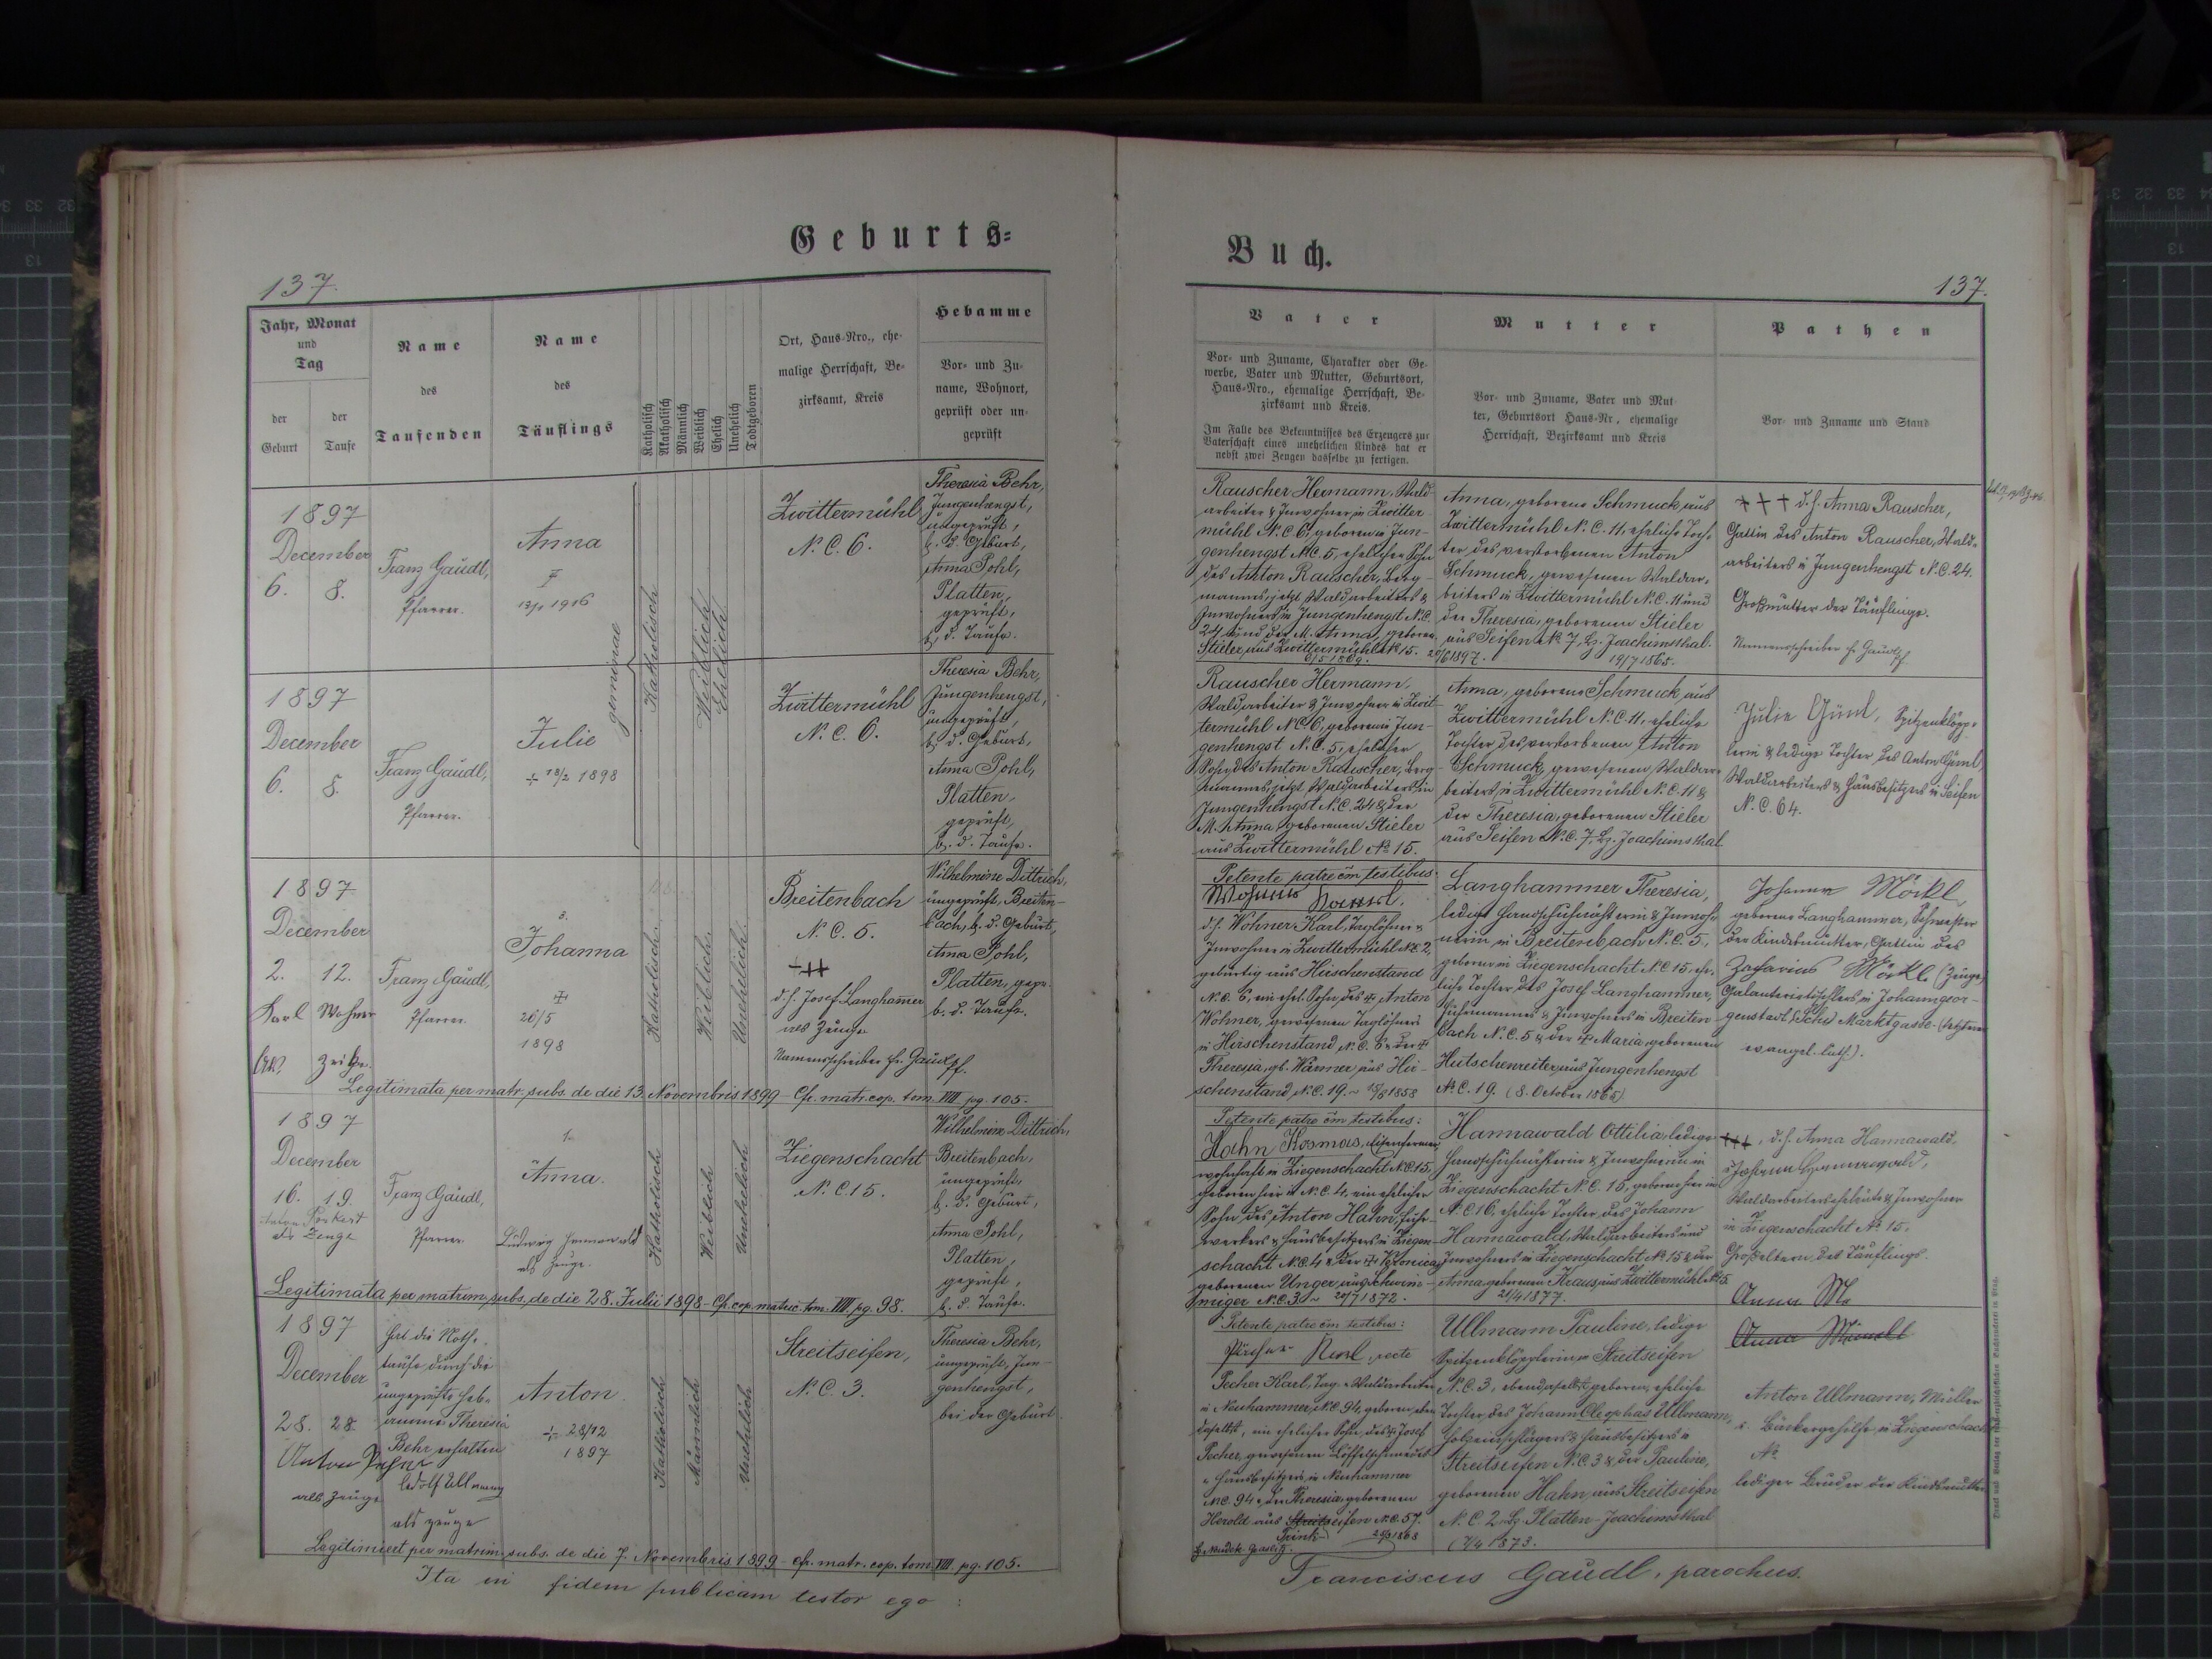 Geburts=
137.
Jahr, Monat
und
Tag
der
Geburt
der
Taufe
Name
des
Taufenden
Name
des
Täuflings
Katholisch
Akatholisch
Männlich
Weiblich
Ehelich
Unehelich
Todtgeboren
Ort, Haus-Nro., ehe-
malige Herrschaft, Be-
zirksamt, Kreis
Hebamme
Vor- und Zu-
name, Wohnort,
geprüft oder un-
geprüft
1897
December
6. 8.
Franz Gaudl,
Pfarrer.
Anna
1916
geminae
Katholisch
Weiblich
Ehelich
Zwittermühl
N. C. 6.
Theresia Behr,
Jungenhengst,
ungeprüft,
b. d. Geburt,
Anna Pohl,
Platten,
geprüft,
b. d. Taufe.
1897
December
6. 8.
Franz Gaudl,
Pfarrer.
Julie
÷ 18/2 1898
Zwittermühl
N. C. 6.
Theresia Behr,
Jungenhengst,
ungeprüft,
b. d. Geburt,
Anna Pohl,
Platten,
geprüft,
b. d. Taufe.
1897
December
2. 12.
Karl Wohner
Franz Gaudl,
Pfarrer.
Johanna
26/5
1898
Katholisch.
Weiblich.
Unehelich.
Breitenbach
N. C. 5.
+++
d. h. Josef Langhammer
als Zeuge
Namensschreiber Fr. Gaudl Pf.
Wilhelmine Dittrich,
ungeprüft, Breiten-
bach, b. d. Geburt,
Anna Pohl,
Platten, gepr.
b. d. Taufe.
Legitimata per matr. subs. de die 13. Novembris 1899 - Cfr. matr. cop. tom. VIII. pg. 105.
1897
December
16. 19.
Anton Porkert
als Zeuge
Franz Gaudl,
Pfarrer.
Anna.
Ludwig Hannawald
als Zeuge.
Katholisch
Weiblich
Unehelich
Ziegenschacht
N. C. 15.
Wilhelmine Dittrich,
Breitenbach,
ungeprüft,
b. d. Geburt,
Anna Pohl,
Platten,
geprüft,
b. d. Taufe.
Legitimata per matrim. subs. de die 28. Julii 1898 - Cfr. cop. matric. tom. VIII. pg. 98.
1897
December
28. 28.
Anton
als Zeuge
Hat die Noth-
taufe durch die
ungeprüfte Heb-
amme Theresia
Behr erhalten
Ullmann
als Zeuge
Anton
÷ 28/12
1897
Katholisch
Männlich
Unehelich
Streitseifen,
N. C. 3.
Theresia Behr,
ungeprüft, Jun-
genhengst,
bei der Geburt
Legitimiert per matrim. subs. de die 7. Novembris 1899 - Cfr. matr. cop. tom. VIII. pg. 105.
Ita in fidem publicam testor ego :
Buch.
137.
Vater
Vor- und Zuname, Charakter oder Ge-
werbe, Vater und Mutter, Geburtsort,
Haus-Nro., ehemalige Herrschaft, Be-
zirksamt und Kreis.
Im Falle des Bekenntnisses des Erzeugers zur
Vaterschaft eines unehelichen Kindes hat er
nebst zwei Zeugen dasselbe zu fertigen.
Mutter
Vor- und Zuname, Vater und Mut-
ter, Geburtsort Haus-Nr., ehemalige
Herrschaft, Bezirksamt und Kreis
Pathen
Vor- und Zuname und Stand
Rauscher Hermann, Wald-
arbeiter & Inwohner in Zwitter-
mühl N. C. 6, geboren in Jun-
genhengst N. C. 5, ehelicher Sohn
des Anton Rauscher, Berg-
mannes, jetzt Waldarbeiters &
Inwohners in Jungenhengst N. C.
24 und der M. Anna, geboren.
Stieler, aus Zwittermühl N. 15.
6/5 1869.
Anna, geborene Schmuck aus
Zwittermühl N. C. 11, eheliche Toch-
ter des verstorbenen Anton
Schmuck, gewesenen Waldar-
beiters in Zwittermühl N. C. 11 und
der Theresia, geborenen Stieler
aus Seifen N. 7, Bz. Joachimsthal.
19/7 1865.
+ + + d. h. Anna Rauscher,
Gattin des Anton Rauscher, Wald-
arbeiters in Jungenhengst N. C. 24.
Großmutter der Täuflinge.
Namensschreiber Fr. Gaudl Pf
Rauscher Hermann,
Waldarbeiter & Inwohner in Zwit-
termühl N. C. 6, geboren in Jun-
genhengst N. C. 5, ehelicher
Sohn des Anton Rauscher, Berg-
mannes, jetzt Waldarbeiters in
Jungenhengst N. C. 24 & der
M. Anna, geborenen Stieler
aus Zwittermühl N. 15.
Anna, geborene Schmuck aus
Zwittermühl N. C. 11, eheliche
Tochter des verstorbenen Anton
Schmuck, gewesenen Waldar-
beiters in Zwittermühl N. C. 11 &
der Theresia, geborenen Stieler
aus Seifen N. C. 7, Bz. Joachimsthal
Julie Günl, Spitzenklöpp-
lerin & ledige Tochter des Anton Günl,
Waldarbeiters & Hausbesitzers in Seifen
N. C. 64.
Petente patre cm testibus:
d. h. Wohner Karl, Taglöhner &
Inwohner in Zwittermühl N. C. 2,
gebürtig aus Hirschenstand
N. C. 6, ein ehel. Sohn des Anton
Wohner, gewesenen Taglöhners
in Hirschenstand N. C. 6 & der
Theresia, gb. Warner aus Hir-
schenstand N. C. 19. 1858
Langhammer Theresia,
ledige Handschuhnähterin & Inwoh-
nerin in Breitenbach N. C. 5,
geboren in Ziegenschacht N. C. 15, ehe-
liche Tochter des Josef Langhammer,
Fuhrmannes & Inwohners in Breiten-
bach N. C. 5 & der Maria, geborenen
Hutschenreiter, aus Jungenhengst
N. C. 19. (8. October 1865)
Johanna Möckl,
geborene Langhammer, Schwester
der Kindesmutter, Gattin des
Zacharias Möckl (Zeuge)
Galanterietischlers in Johanngeor-
genstadt, Marktgasse.
evangel. luth.).
Petente patre cm testibus:
Hahn Kosmas,
wohnhaft in Ziegenschacht N. C. 15,
geboren hier in N. C. 4, ein ehelicher
Sohn des Anton Hahn, Fuhr-
werkers & Hausbesitzers in Ziegen-
schacht N. C. 4 & der Veronica,
geborenen Unger, aus Schwim-
miger N. C. 3. 1872.
Hannawald Ottilia, ledige
Handschuhnähterin & Inwohnerin in
Ziegenschacht N. C. 15, geboren hier in
N. C. 16, eheliche Tochter des Johann
Hannawald, Waldarbeiters und
Inwohners in Ziegenschacht N. 15 & der
Anna, geborenen Kraus, aus Zwittermühl N. 5
21/4 1877.
+++, d. h. Anna Hannawald,
Johann Hannawald,
Waldarbeiterseheleute & Inwohner
in Ziegenschacht N. 15.
Großeltern des Täuflings.
Anna
Anna
Petente patre cm testibus:
Karl, recte
Pecher Karl, Tag- & Waldarbeiter
in Neuhammer, N. C. 94, geboren eben-
daselbst, ein ehelicher Sohn des Josef
Pecher, gewesenen Löffelschmiedes
& Hausbesitzers in Neuhammer
N. C. 94 & der Theresia, geborenen
Herold aus Streitseifen N. C. 57.
1868
Ullmann Pauline, ledige
Spitzenklöpplerin in Streitseifen
N. C. 3, ebendaselbst geboren, eheliche
Tochter des Johann Cleophas Ullmann,
Holzeinschlägers & Hausbesitzers in
Streitseifen N. C. 3 & der Pauline,
geborenen Hahn, aus Streitseifen
N. C. 2, Bz. Platten-Joachimsthal
1873.
Anton Ullmann, Müller
u. Bäckergehilfe in Ziegenschacht
N.
lediger Bruder der Kindsmutter
Franciscus Gaudl, parochus.